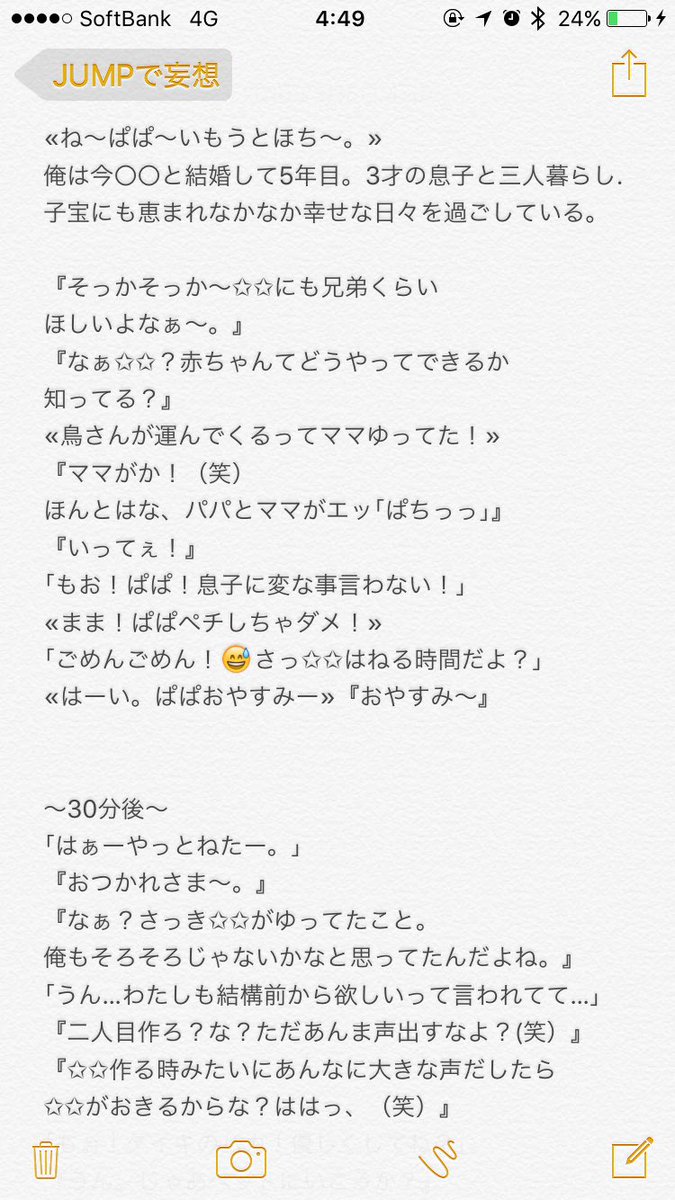 SoftBank 4G 4:49 24%
JUMPで妄想
«ね〜ぱぱ〜いもうとほち〜。»
俺は今〇〇と結婚して5年目。3才の息子と三人暮らし.
子宝にも恵まれなかなか幸せな日々を過ごしている。
『そっかそっか〜✩✩にも兄弟くらい
ほしいよなぁ〜。』
『なぁ✩✩？赤ちゃんてどうやってできるか
知ってる？』
«鳥さんが運んでくるってママゆってた！»
『ママがか！（笑）
ほんとはな、パパとママがエッ｢ぱちっっ｣』
『いってぇ！』
｢もお！ぱぱ！息子に変な事言わない！｣
«まま！ぱぱペチしちゃダメ！»
｢ごめんごめん！😅さっ✩✩はねる時間だよ？｣
«はーい。ぱぱおやすみー»『おやすみ〜』
〜30分後〜
｢はぁーやっとねたー。｣
『おつかれさま〜。』
『なぁ？さっき✩✩がゆってたこと。
俺もそろそろじゃないかなと思ってたんだよね。』
｢うん...わたしも結構前から欲しいって言われてて...｣
『二人目作ろ？な？ただあんま声出すなよ？(笑）』
『✩✩作る時みたいにあんなに大きな声だしたら
✩✩がおきるからな？ははっ、（笑）』